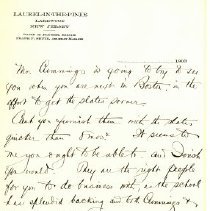 LAUREL-IN-THE-PINES
LAKEWOOD
NEW JERSEY
1903
Mr. Cummings is going to try to see
you when you are next in Boston, in the
effort to get the slates sooner.
Can you furnish them with the slates
quicker than 8 mos? It seems to
me you ought to be able to - and I wish
you would. They are the right people
for you to do business with, as the school
has splendid backing and both Cummings &